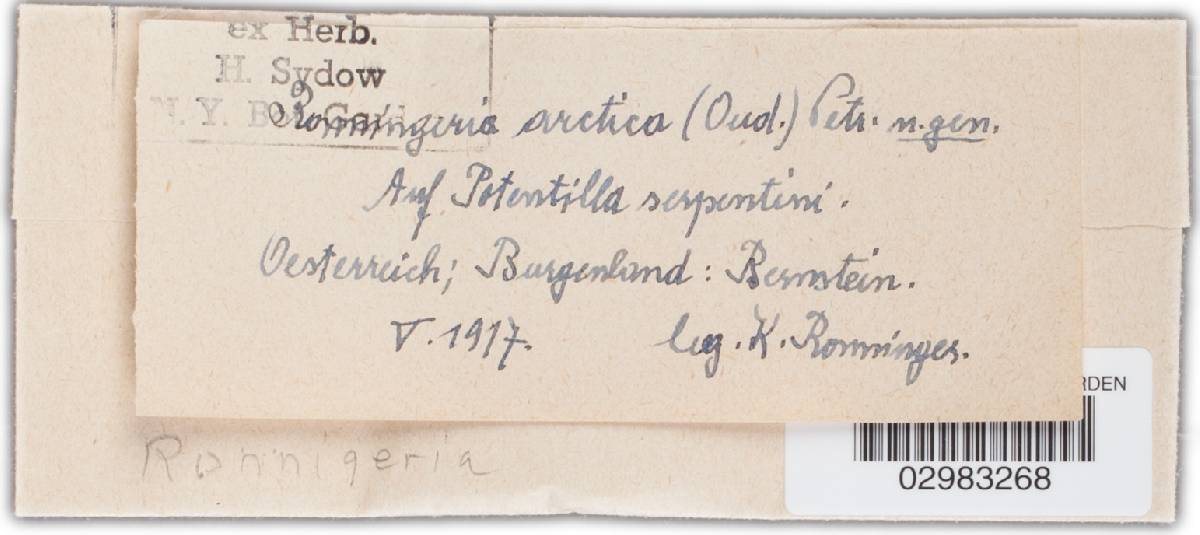 ex Herb.
H. Sydow
N. Y. Bot. Gard.
Ronnigeria arctica (Oud.) Petr. n. gen.
Auf Potentilla serpentini.
Oesterreich; Burgenland: Bernstein.
V. 1917. leg. K. Ronniger.
RDEN
02983268
Ronnigeria